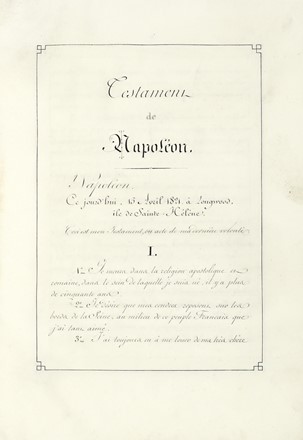 Testament
de
Napoléon.
Napoléon
Ce jourd'hui 15 Avril 1821, à Longwood,
île de Sainte-Hélène.
Ceci est mon Testament, ou acte de ma dernière volonté.
I.
1º. Je meurs dans la religion apostolique et
romaine, dans le sein de laquelle je suis né, il y a plus
de cinquante ans.
2º. Je désire que mes cendres reposent sur les
bords de la Seine, au milieu de ce peuple Français que
j'ai tant aimé.
3º. J'ai toujours eu à me louer de ma très chère